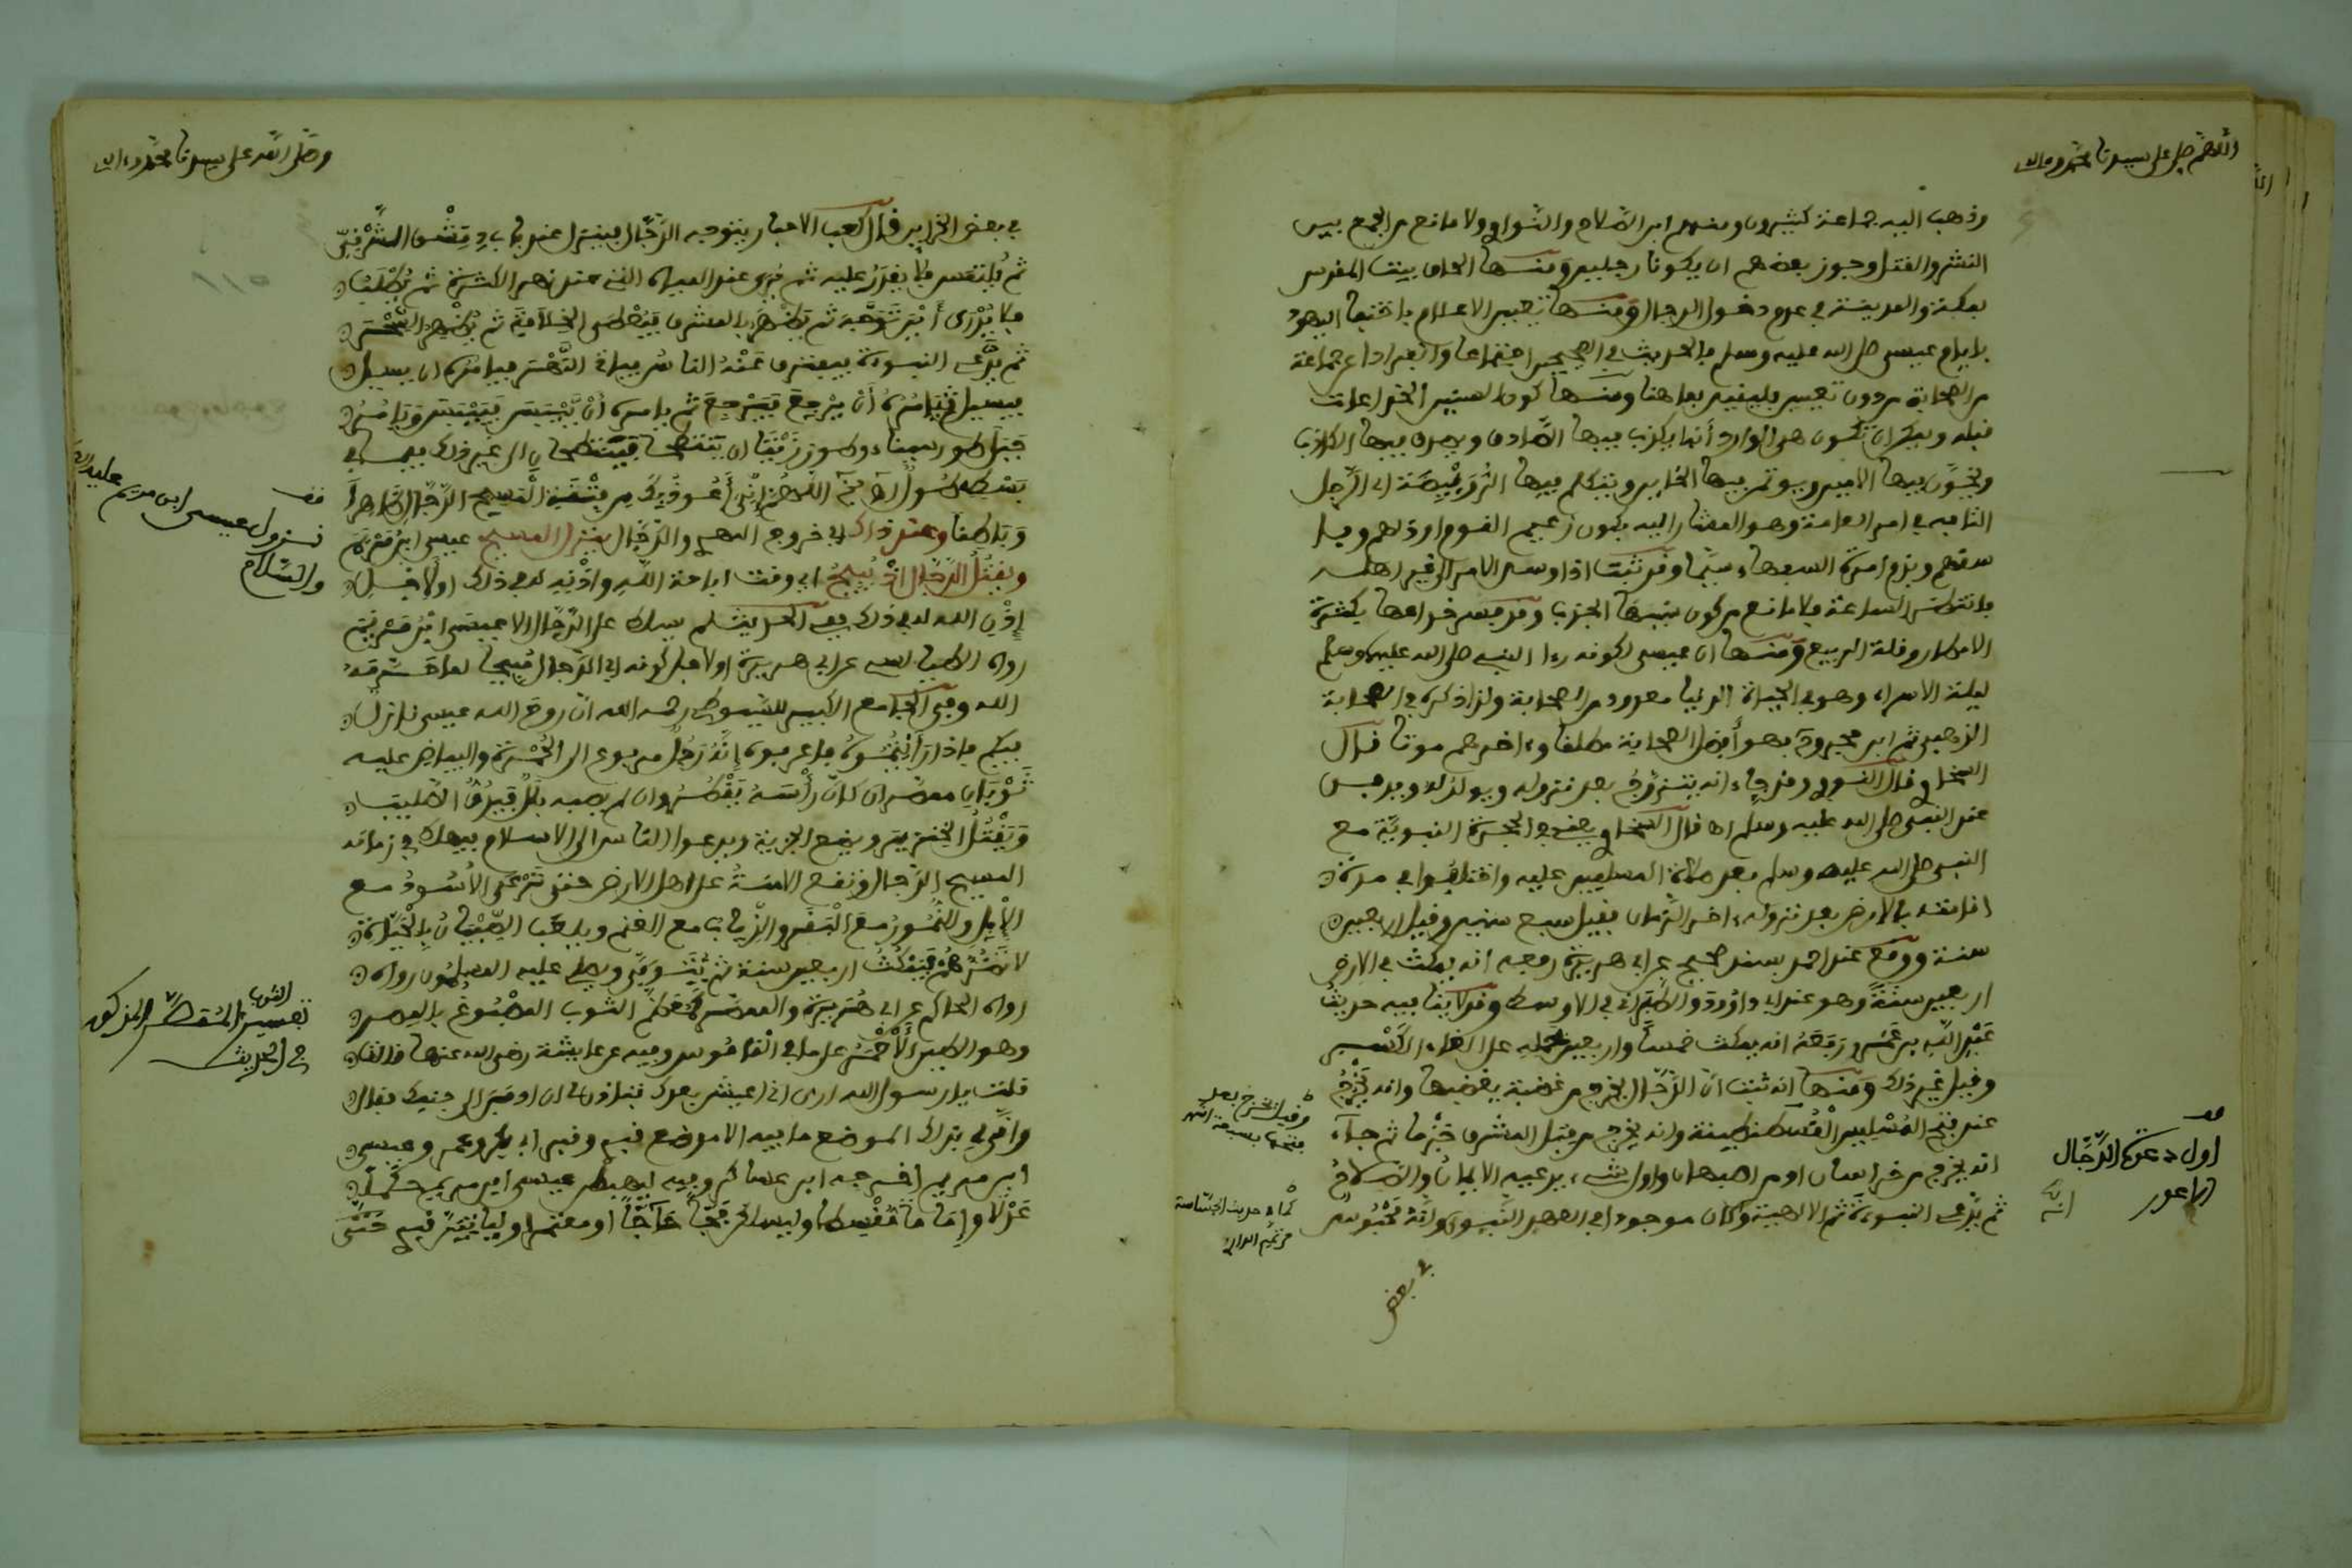 اللهم صل على سيدنا محمد وءاله
وذهب اليه جماعة كثيرون ومنهم ابن السلام والنواوي ولا مانع من الجمع بين
النشر والقتل وجوز بعضهم ان يكونا رجلين ومنها الحاق بيت المقدس
بمكة والمدينة في عدم دخول الدجال ومنها تعيين الاعلام
بايام عيسى صلى الله عليه وسلم
من الصحابة من دون تعيين
قبله ويمكن ان تكون هي الوارد أنها يكذب فيها الصادق ويصدق فيها الكاذب
ويخون فيها الامين ويوتمن فيها الخاين ويتكلم فيها الرويبضة اي الرجل
التافه في امر العامة وهو المشار اليه بكون زعيم القوم ارذلهم
وقد ثبت اذا وسد الامر الى غير اهله
فانتظر الساعة فلا مانع من كون سببها الجدب وقد يفسر خداعها بكثرة
الامطار وقلة الريع ومنها ان عيسى لكونه رءا النبي صلى الله عليه وسلم
ليلة الاسراء وهو في الحياة الدنيا معدود من الصحابة ولذا ذكره في الصحابة
الذهبي ثم ابن حجر وءا فهو أفضل الصحابة مطلقا وءاخرهم موتا قال
السخاوي قال النسوي وقد جاء انه يتزوج بعد نزوله ويولد له ويدفن
عند النبي صلى الله عليه وسلم اه قال السخاوي يعني في الحجرة النبوية مع
النبي صلى الله عليه وسلم بعد صلاة المسلمين عليه واختلفوا في مدة
اقامته في الارض بعد نزوله ءاخر الزمان فقيل سبع سنين وقيل اربعين
سنة ووقع عند احمد بسند صحيح عن ابي هريرة رفعه انه يمكث في الارض
اربعين سنة وهو عند ابي داوود والطبراني في الاوسط وقد كتبنا فيه حديث
عبد الله بن عمر ورفعه انه يمكث خمسا واربعين فحمله على الغاء الكسر
وقيل غير ذلك ومنها انه ثبت ان الدجال يخرج من غضبة يغضبها وانه يخرج
عند فتح المسلمين القسطنطينة وانه يخرج من قبل المشرق جزما ثم جاء
انه يخرج من خراسان او من اصبهان واول شيء يدعيه الايمان والاسلام
ثم يدعي النبوءة ثم الالهية وكان موجودا في العهد النبوي وانه محبوس
في بعض
وقيل يخرج بعد
كما في حديث الجساسة
قف
اول دعوة الدجال
الاعور
وصلى الله على سيدنا محمد وءاله
في بعض الجزاير قال كعب الاحبار يتوجه الدجال فينزل عند باب دمشق الشرقي
ثم يلتمس فلا يقدر عليه ثم يرى عند المياه التي عند نهر الكشوة ثم يطلب
فلا يدرى أين توجه ثم يظهر بالمشرق فيعطى الخلافة ثم يظهر السحر
ثم يدعي النبوءة فيفترق عنه الناس فياتي النهر فيامره ان يسيل
فيسيل ثم يامره أن يرجع فيرجع ثم يامره أن ييبس فييبس ويامر
جبل طور سيناء وطور زيتا ان ينتطحا فينتطحان الى غير ذلك
اللهم إني أعوذ بك من فتنة المسيح الدجال ظاهرا
وباطنا وعند ذاك اي خروج المسيح الدجال ينزل المسيح عيسى ابن مريم
ويقتل الدجال إذ يبيح اي وقت اباحة الله واذنه له في ذلك اولا قبل
إذن الله له في ذلك ففي الحديث لم يسلط على الدجال الا عيسى ابن مريم
رواه الطيالسي عن ابي هريرة اولا جل كونه اي الدجال مبيحا لما حرمه
الله وفي الجامع الكبير للسيوطي رحمه الله ان روح الله عيسى نازل
فيكم فاذا رأيتموه فاعرفوه إنه رجل مربوع الى الحمرة والبياض عليه
ثوبان ممصران كان رأسه يقطر وان لم يصبه بلل فيدق الصليب
ويقتل الخنزير ويضع الجزية ويدعوا الناس الى الاسلام فيهلك في زمانه
المسيح الدجال وتقع الامنة على اهل الارض حتى ترعى الأسود مع
الإبل والنمور مع البقر والذياب مع الغنم ويلعب الصبيان بالحيات
لا تضرهم فيمكث اربعين سنة ثم يتوفى ويصلي عليه المسلمون رواه
رواه الحاكم عن ابي هريرة والممصر كمعظم الثوب المصبوغ بالمصر
وهو الطين الأحمر على ما في القاموس وفيه عن عايشة رضي الله عنها قالت
قلت يا رسول الله ارى اني اعيش بعدك فتاذن لي ان ادفن الى جنبك فقال
وانى لي بذلك الموضع ما فيه الا موضع قبري وقبر ابي بكر وعمر وعيسى
ابن مريم اخرجه ابن عساكر وفيه ليهبطن عيسى ابن مريم حكما
عدلا وإماما مقسطا وليسلكن فجا حاجا او معتمرا وليأتين قبري حتى
قف
نزول عيسى ابن مريم عليه
والسلام
تفسير الثوب الممصر المذكور
في الحديث